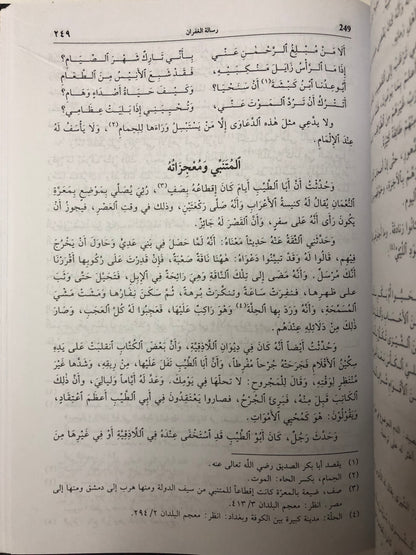 ٢٤٩ رسالة الغفران 249
أَلَا مَنْ مُبْلِغُ الرَّحْمٰنِ عَنِّي بِأَنِّي تَارِكٌ شَهْرَ الصِّيَامِ؟
إِذَا مَا الرَّأْسُ زَايَلَ مَنْكِبَيْهِ، فَقَدْ شَبِعَ الأَنِيسُ مِنَ الطَّعَامِ
أَيُوعِدُنَا ابْنُ كَبْشَةَ (١) أَنْ سَنَحْيَا؟ وَكَيْفَ حَيَاةُ أَصْدَاءٍ وَهَامِ؟
أَتَتْرُكُ أَنْ تَرُدَّ الْمَوْتَ عَنِّي، وَتُحْيِيَنِي إِذَا بَلِيَتْ عِظَامِي؟
ولا يدعي مثلَ هذه الدَّعاوَى إلّا مَن يَستبسِل وَراءَها للحِمام (٢)، وَلا يأسَف لهُ
عند الإلْمام.
المُتنَبِّي ومُعْجِزاتُه
وحُدِّثتُ أنَّ أبا الطَّيِّب أيامَ كان إقطاعُهُ بِصَفٍ (٣)، رُئيَ يُصلّي بموضعٍ بمَعرّة
النُّعمان يُقالُ لهُ كنيسةُ الأعراب، وأنّه صلّى ركعتين، وذلك في وقت العَصْر، فيجوز أن
يكونَ رأى أنّه على سفرٍ، وأنَّ القَصْرَ لهُ جائز.
وحدّثني الثّقةُ عنه حَديثاً معناهُ: أنّه لمّا حصلَ في بني عَديٍّ وحاولَ أن يَخرُج
فيهم، قالوا له وقد تبيّنوا دَعْواهُ: هٰهُنا ناقةٌ صَعبة، فإن قدرتَ على رُكوبها أقرَرْنا
أنّك مُرسَل. وأنّه مضى إلى تلك النّاقة وهي رائحةٌ في الإبل، فتحيّل حتى وثَب
على ظهرها، فنفرَت ساعةً وتنكّرت بُرهةً، ثم سكَن نِفارُها ومشت مَشيَ
المُسمِحة، وأنّه ورَد بها الحِلّة (٤) وهو راكبٌ عليها، فعجِبوا له كلَّ العجَب، وصارَ
ذلك من دلائله عندهم.
وحُدِّثتُ أيضاً أنّه كان في ديوان اللّاذقيّة، وأنّ بعضَ الكُتّاب انقلبت على يدِه
سِكّينُ الأقلام فجرَحته جُرحاً مُفرِطاً، وأنّ أبا الطَّيّب تفَل عليها، من ريقِه، وشدّها غيرَ
مُنتظِرٍ لوقتِه، وقال للمجروح: لا تحلّها في يومِك. وعدّ له أياماً ولياليَ، وأنّ ذلك
الكاتبَ قبِل منه، فبَرئَ الجُرح، فصاروا يعتقدون في أبي الطَّيّب أعظمَ اعتقادٍ،
ويقولون: هو كمُحيي الأموات.
وحدّث رجلٌ، كان أبو الطَّيّب قد استَخفى عنده في اللّاذقيّة أو في غيرها من
(١) يقصد أبا بكر الصديق رضي الله تعالى عنه.
(٢) الحمام، بكسر الحاء: الموت.
(٣) صف، ضيعة بالمعرّة كانت إقطاعاً للمتنبي من سيف الدولة ومنها هرب إلى دمشق ومنها إلى
مصر. انظر: معجم البلدان ٣/٤١٣.
(٤) الحلّة: مدينة كبيرة بين الكوفة وبغداد: انظر: معجم البلدان ٢/٢٩٤.